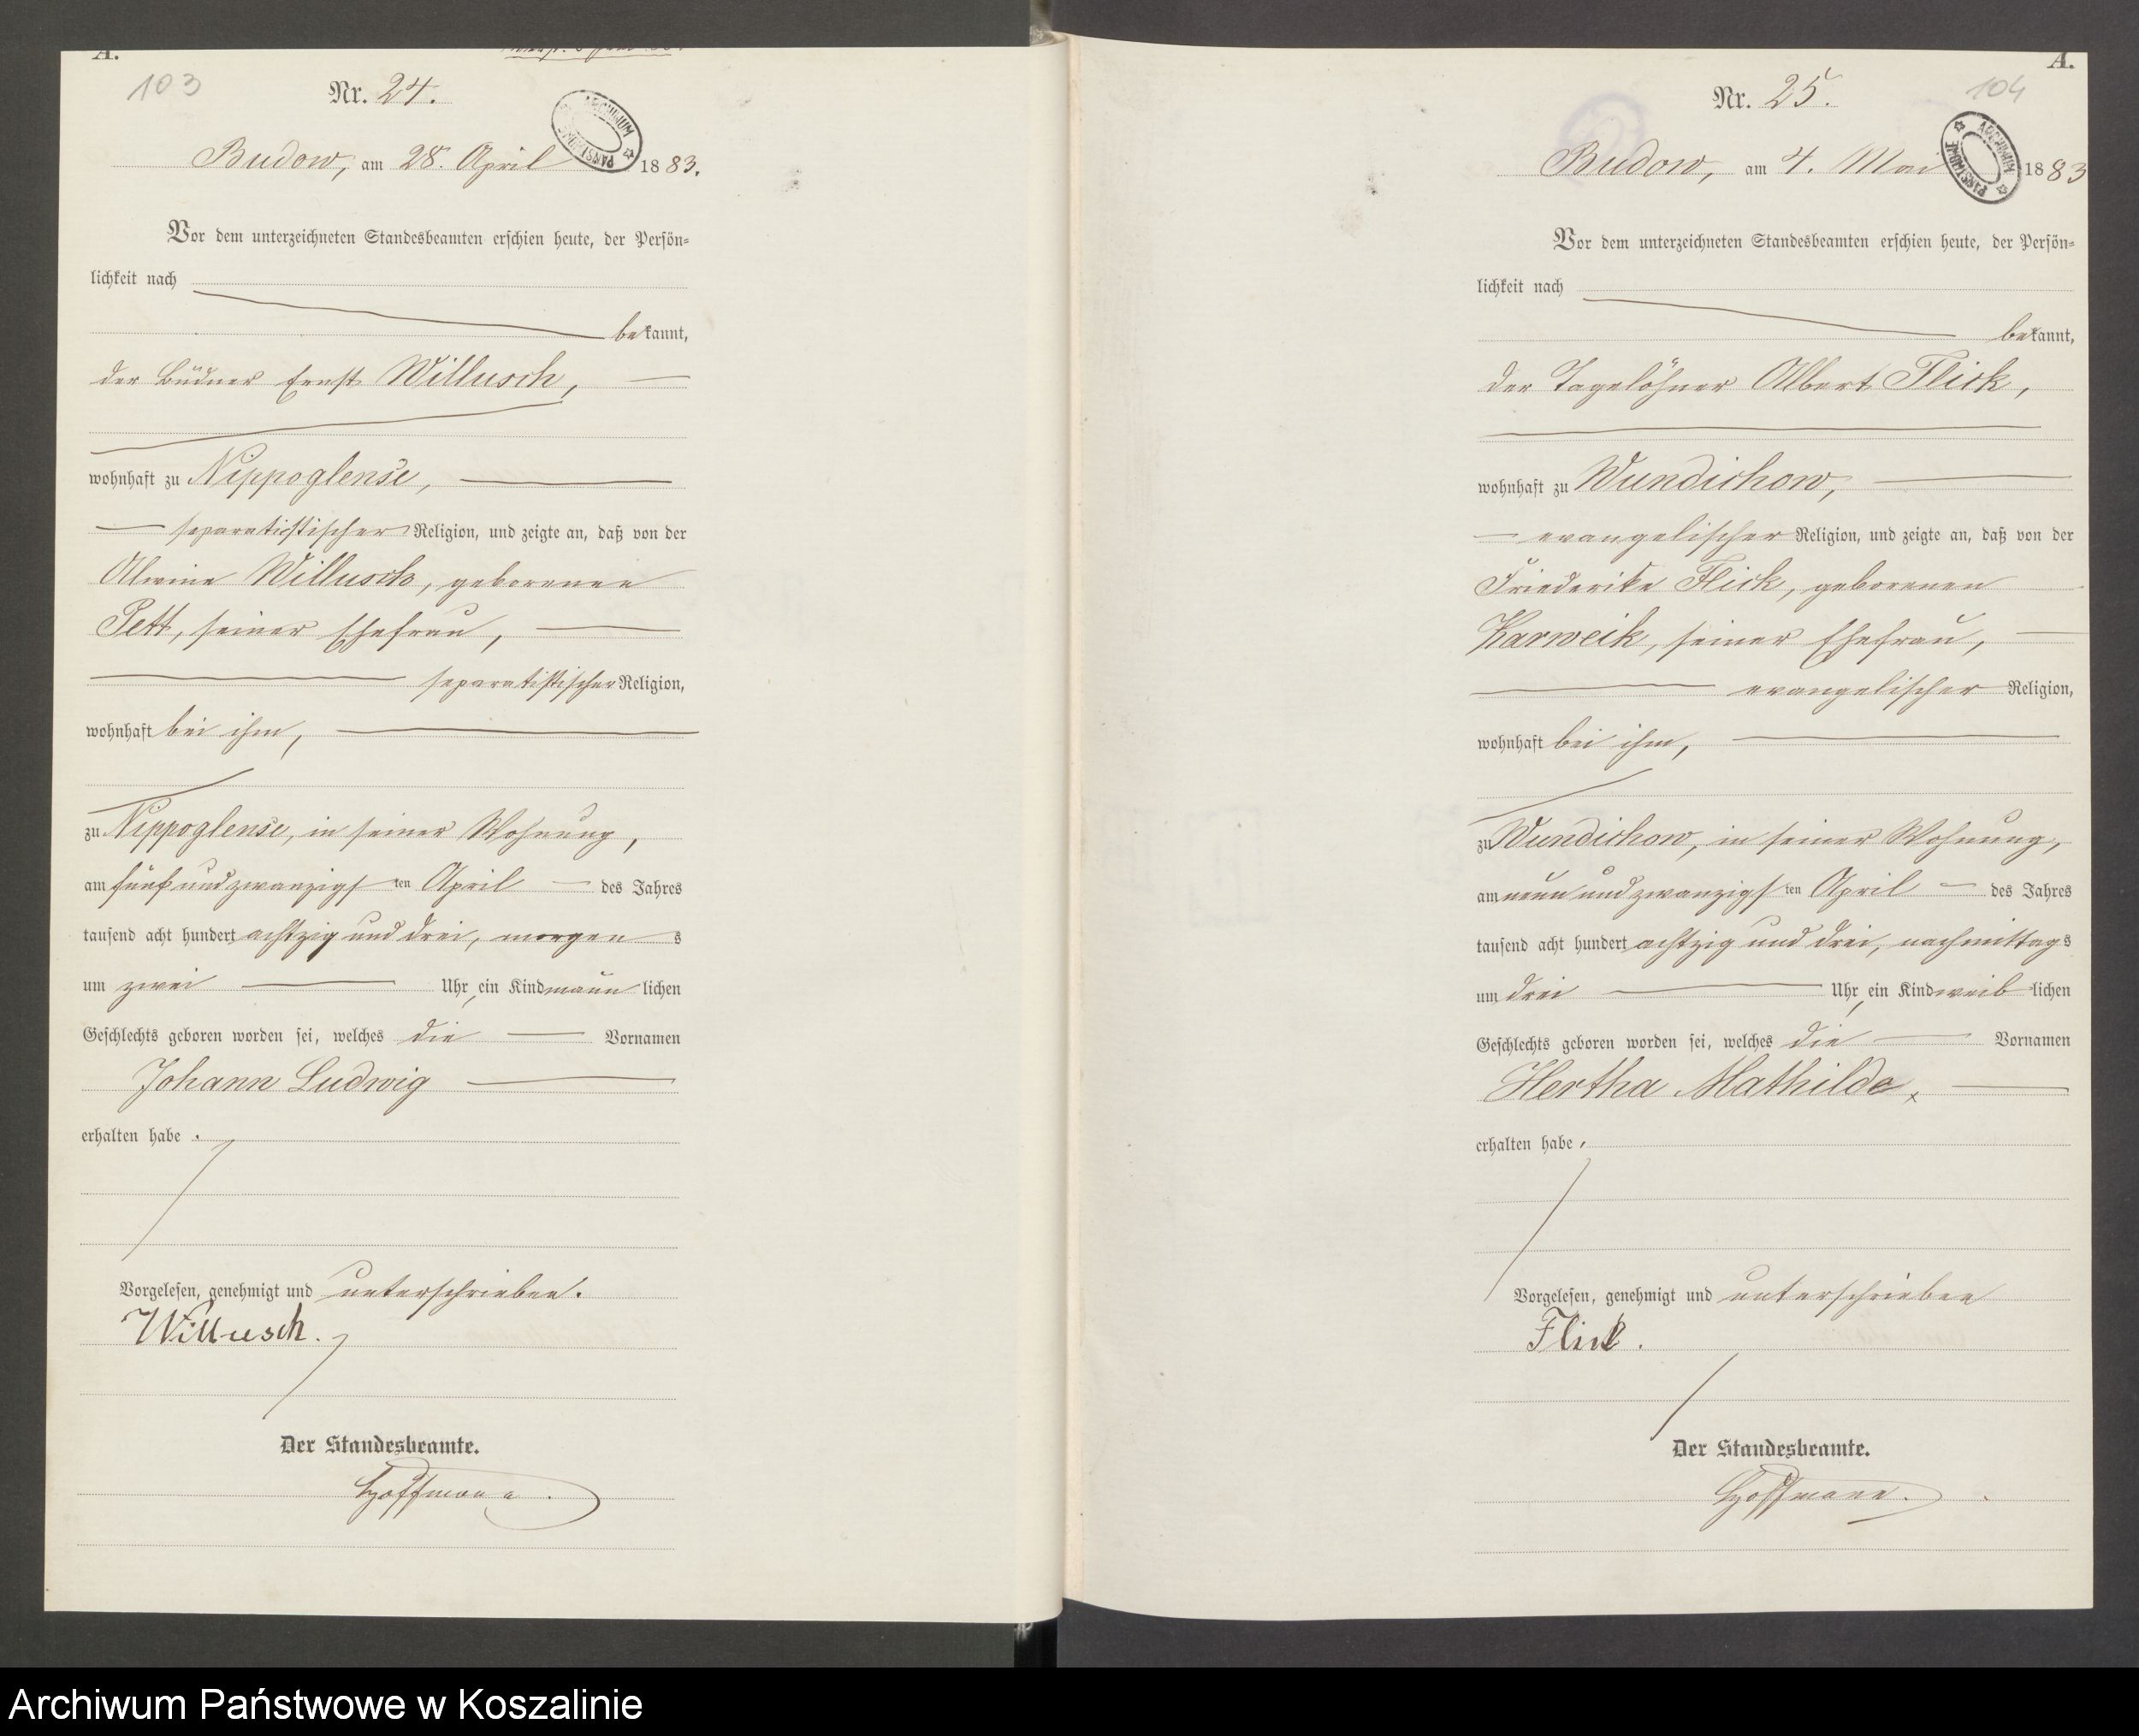 A.
103
Nr. 24.
ARCHIWUM PAŃSTWOWE
Budow, am 28. April 1883.
Vor dem unterzeichneten Standesbeamten erschien heute, der Persön-
lichkeit nach
bekannt,
der Büdner Ernst Willusch,
wohnhaft zu Nippoglense,
separatistischer Religion, und zeigte an, daß von der
Alwine Willusch, geborenen
Pett, seiner Ehefrau,
separatistischer Religion,
wohnhaft bei ihm,
zu Nippoglense, in seiner Wohnung,
am fünf und zwanzigsten April des Jahres
tausend acht hundert achtzig und drei, morgens
um zwei Uhr, ein Kind männlichen
Geschlechts geboren worden sei, welches die Vornamen
Johann Ludwig
erhalten habe.
Vorgelesen, genehmigt und unterschrieben.
Willusch.
Der Standesbeamte.
Hoffmann.
A.
104
Nr. 25.
ARCHIWUM PAŃSTWOWE
Budow, am 4. Mai 1883
Vor dem unterzeichneten Standesbeamten erschien heute, der Persön-
lichkeit nach
bekannt,
der Tagelöhner Albert Flick,
wohnhaft zu Wundichow,
evangelischer Religion, und zeigte an, daß von der
Friederike Flick, geborenen
Karweik, seiner Ehefrau,
evangelischer Religion,
wohnhaft bei ihm,
zu Wundichow, in seiner Wohnung,
am neun und zwanzigsten April des Jahres
tausend acht hundert achtzig und drei, nachmittags
um drei Uhr, ein Kind weiblichen
Geschlechts geboren worden sei, welches die Vornamen
Hertha Mathilde,
erhalten habe.
Vorgelesen, genehmigt und unterschrieben
Flick.
Der Standesbeamte.
Hoffmann.
Archiwum Państwowe w Koszalinie